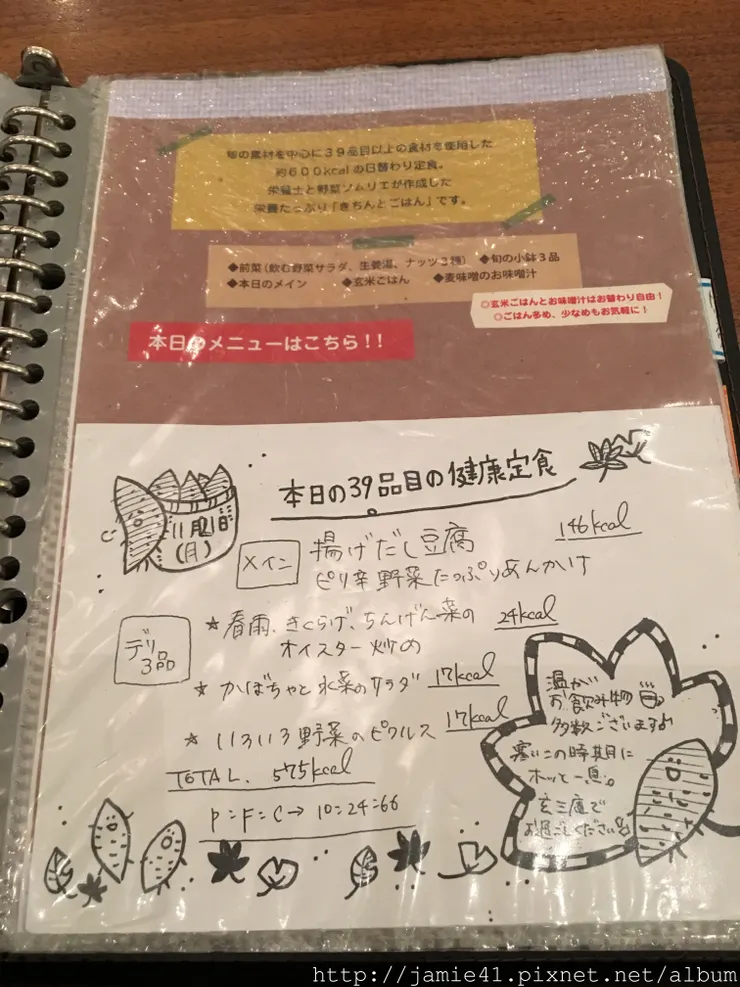 旬の食材を中心に39品目以上の食材を使用した
約600kcalの日替わり定食。
栄養士と野菜ソムリエが作成した
栄養たっぷり「きちんとごはん」です。
◆前菜(飲む野菜サラダ、生姜湯、ナッツ3種) ◆旬の小鉢3品
◆本日のメイン ◆玄米ごはん ◆麦味噌のお味噌汁
◎玄米ごはんとお味噌汁はお替わり自由!
◎ごはん多め、少なめもお気軽に!
本日のメニューはこちら!!
本日の39品目の健康定食
11月21日
(月)
メイン 揚げだし豆腐 146kcal
ピリ辛野菜たっぷりあんかけ
デリ3品
★春雨、きくらげ、ちんげん菜の 24kcal
オイスター炒め
★かぼちゃと水菜のサラダ 17kcal
★いろいろ野菜のピクルス 17kcal
TOTAL. 575kcal
P:F:C→10:24:66
温かい
お飲み物
多数ございます♪
寒いこの時期に
ホッと一息。
玄三庵で
お過ごしください
http://jamie41.pixnet.net/album